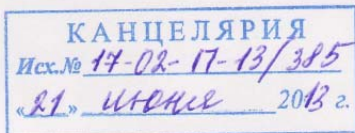 КАНЦЕЛЯРИЯ
Исх.№ 17-02-П-13/385
«21» июня 2013 г.